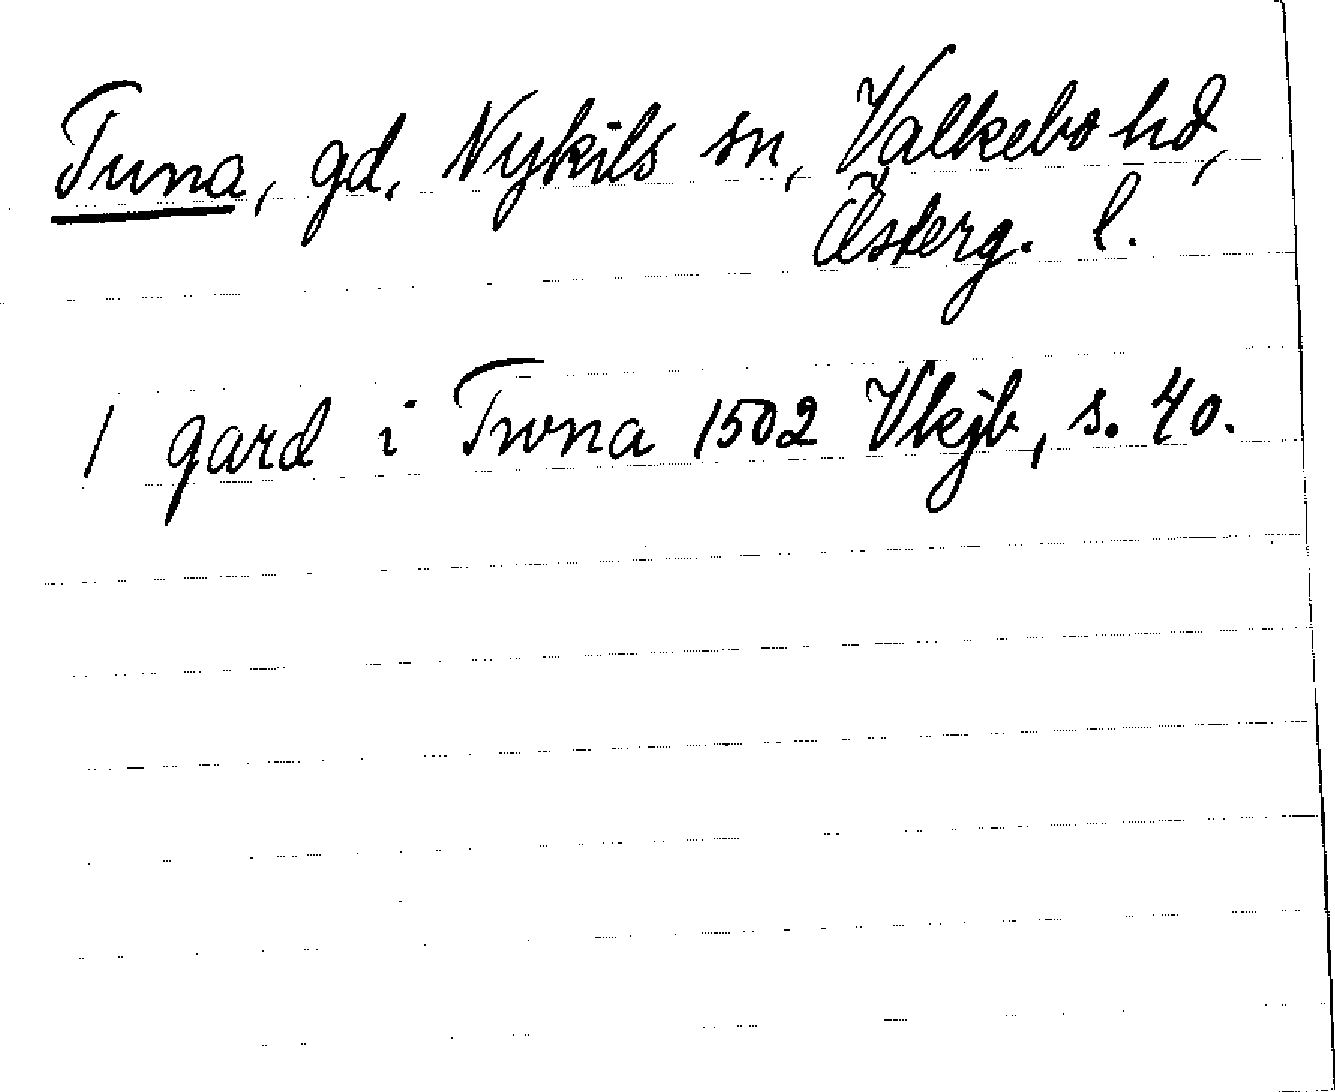 Tuna, gd. Nykils sn, Valkebo hd,
Österg. l.
1 gard i Twna 1502 Vkjb, s. 40.